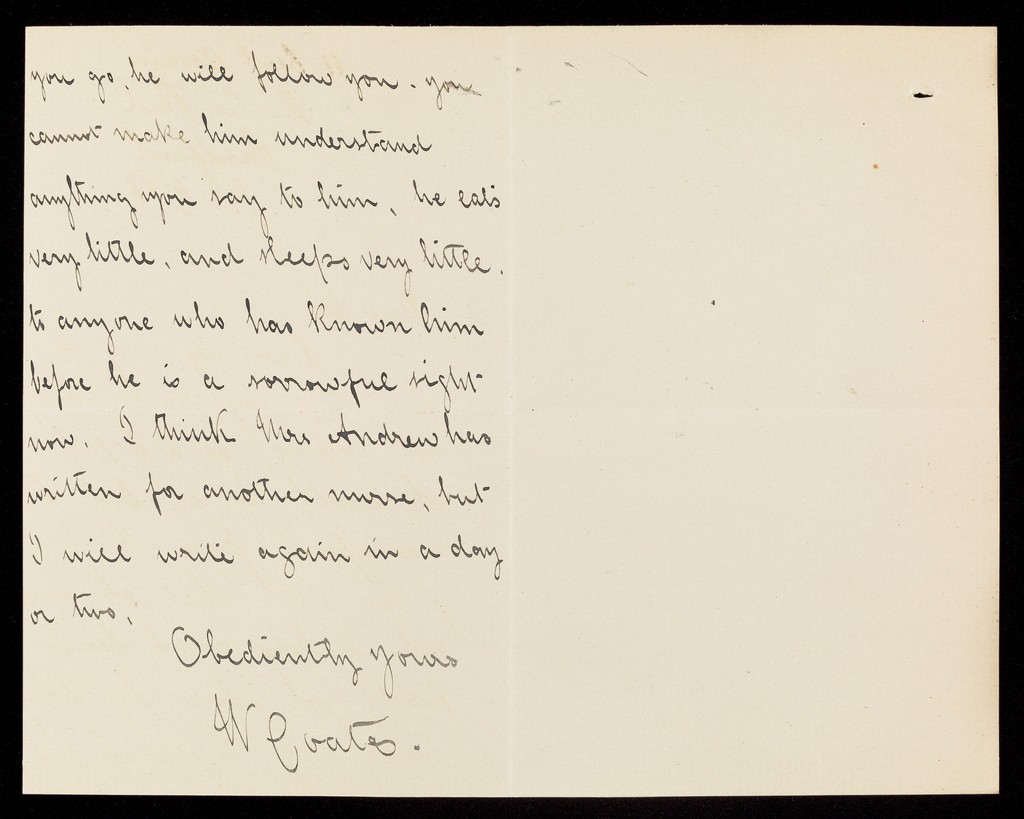 you go, he will follow you. you
cannot make him understand
anything you say to him, he eats
very little, and sleeps very little.
to anyone who has known him
before he is a sorrowful sight
now. I think Mrs Andrew has
written for another nurse, but
I will write again in a day
or two.
Obediently yours
W Coates.